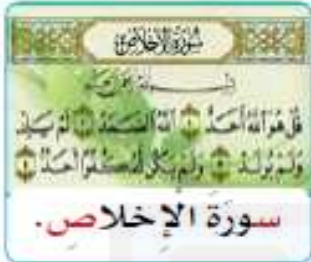 سُورَةُ الإِخْلَاصِ
بِسْمِ اللَّهِ الرَّحْمَٰنِ الرَّحِيمِ
قُلْ هُوَ اللَّهُ أَحَدٌ ۝١ اللَّهُ الصَّمَدُ ۝٢ لَمْ يَلِدْ
وَلَمْ يُولَدْ ۝٣ وَلَمْ يَكُن لَّهُ كُفُوًا أَحَدٌ ۝٤
سورَة الإِخلاصِ.